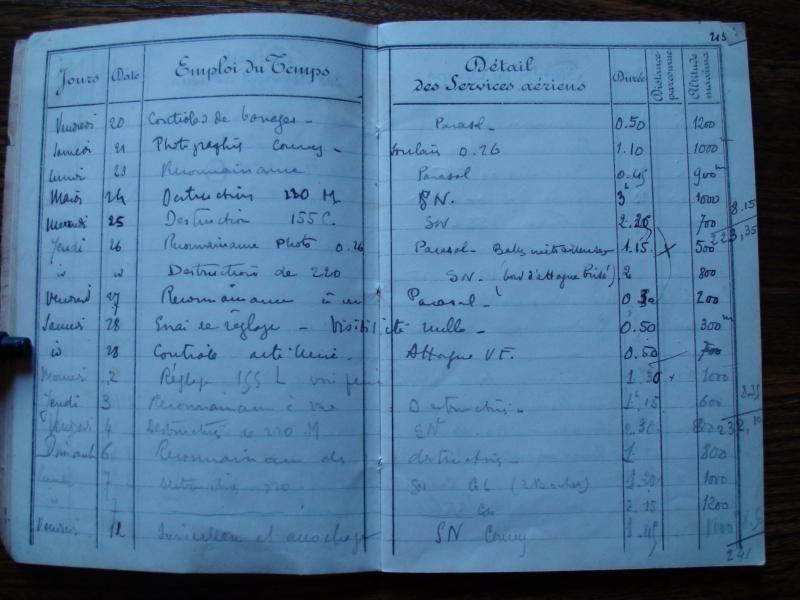 215
Jours Date Emploi du Temps Détail des Services aériens Durée Distance parcourue Altitude maxima
Vendredi 20 Contrôles de barrages - Parasol - 0.50 1200
Samedi 21 Photographie 0.26 1.10 1000
Lundi 23 Reconnaissance Parasol 0.45 900
Mardi 24 Destruction 220 M SN. 3 1000 8.15
Mercredi 25 Destruction 155 C. SN 2.20 700 223,35
Jeudi 26 Reconnaissance Photo 0.26 Parasol - Balles mitrailleuses 1.15 x 500
id id Destruction de 220 SN - (bord d'attaque brisé) 2 800
Vendredi 27 Reconnaissance à vue Parasol - 0.30 200
Samedi 28 Essai de réglage - Visibilité nulle - 0.50 300
id 28 Contrôle artillerie - Attaque V.F. 0.50 700
2 Réglage 155 L 1.30 x 1000
Jeudi 3 Reconnaissance à vue Destruction - 1.15 600 8.35
4 Destruction de 220 M SN 2.30 800 232,10
Dimanche 6 Reconnaissance des destructions - 1 800
Lundi 7 220 (2 Boches) 1000
7 2.15 1200
Vendredi SN 1.45
241